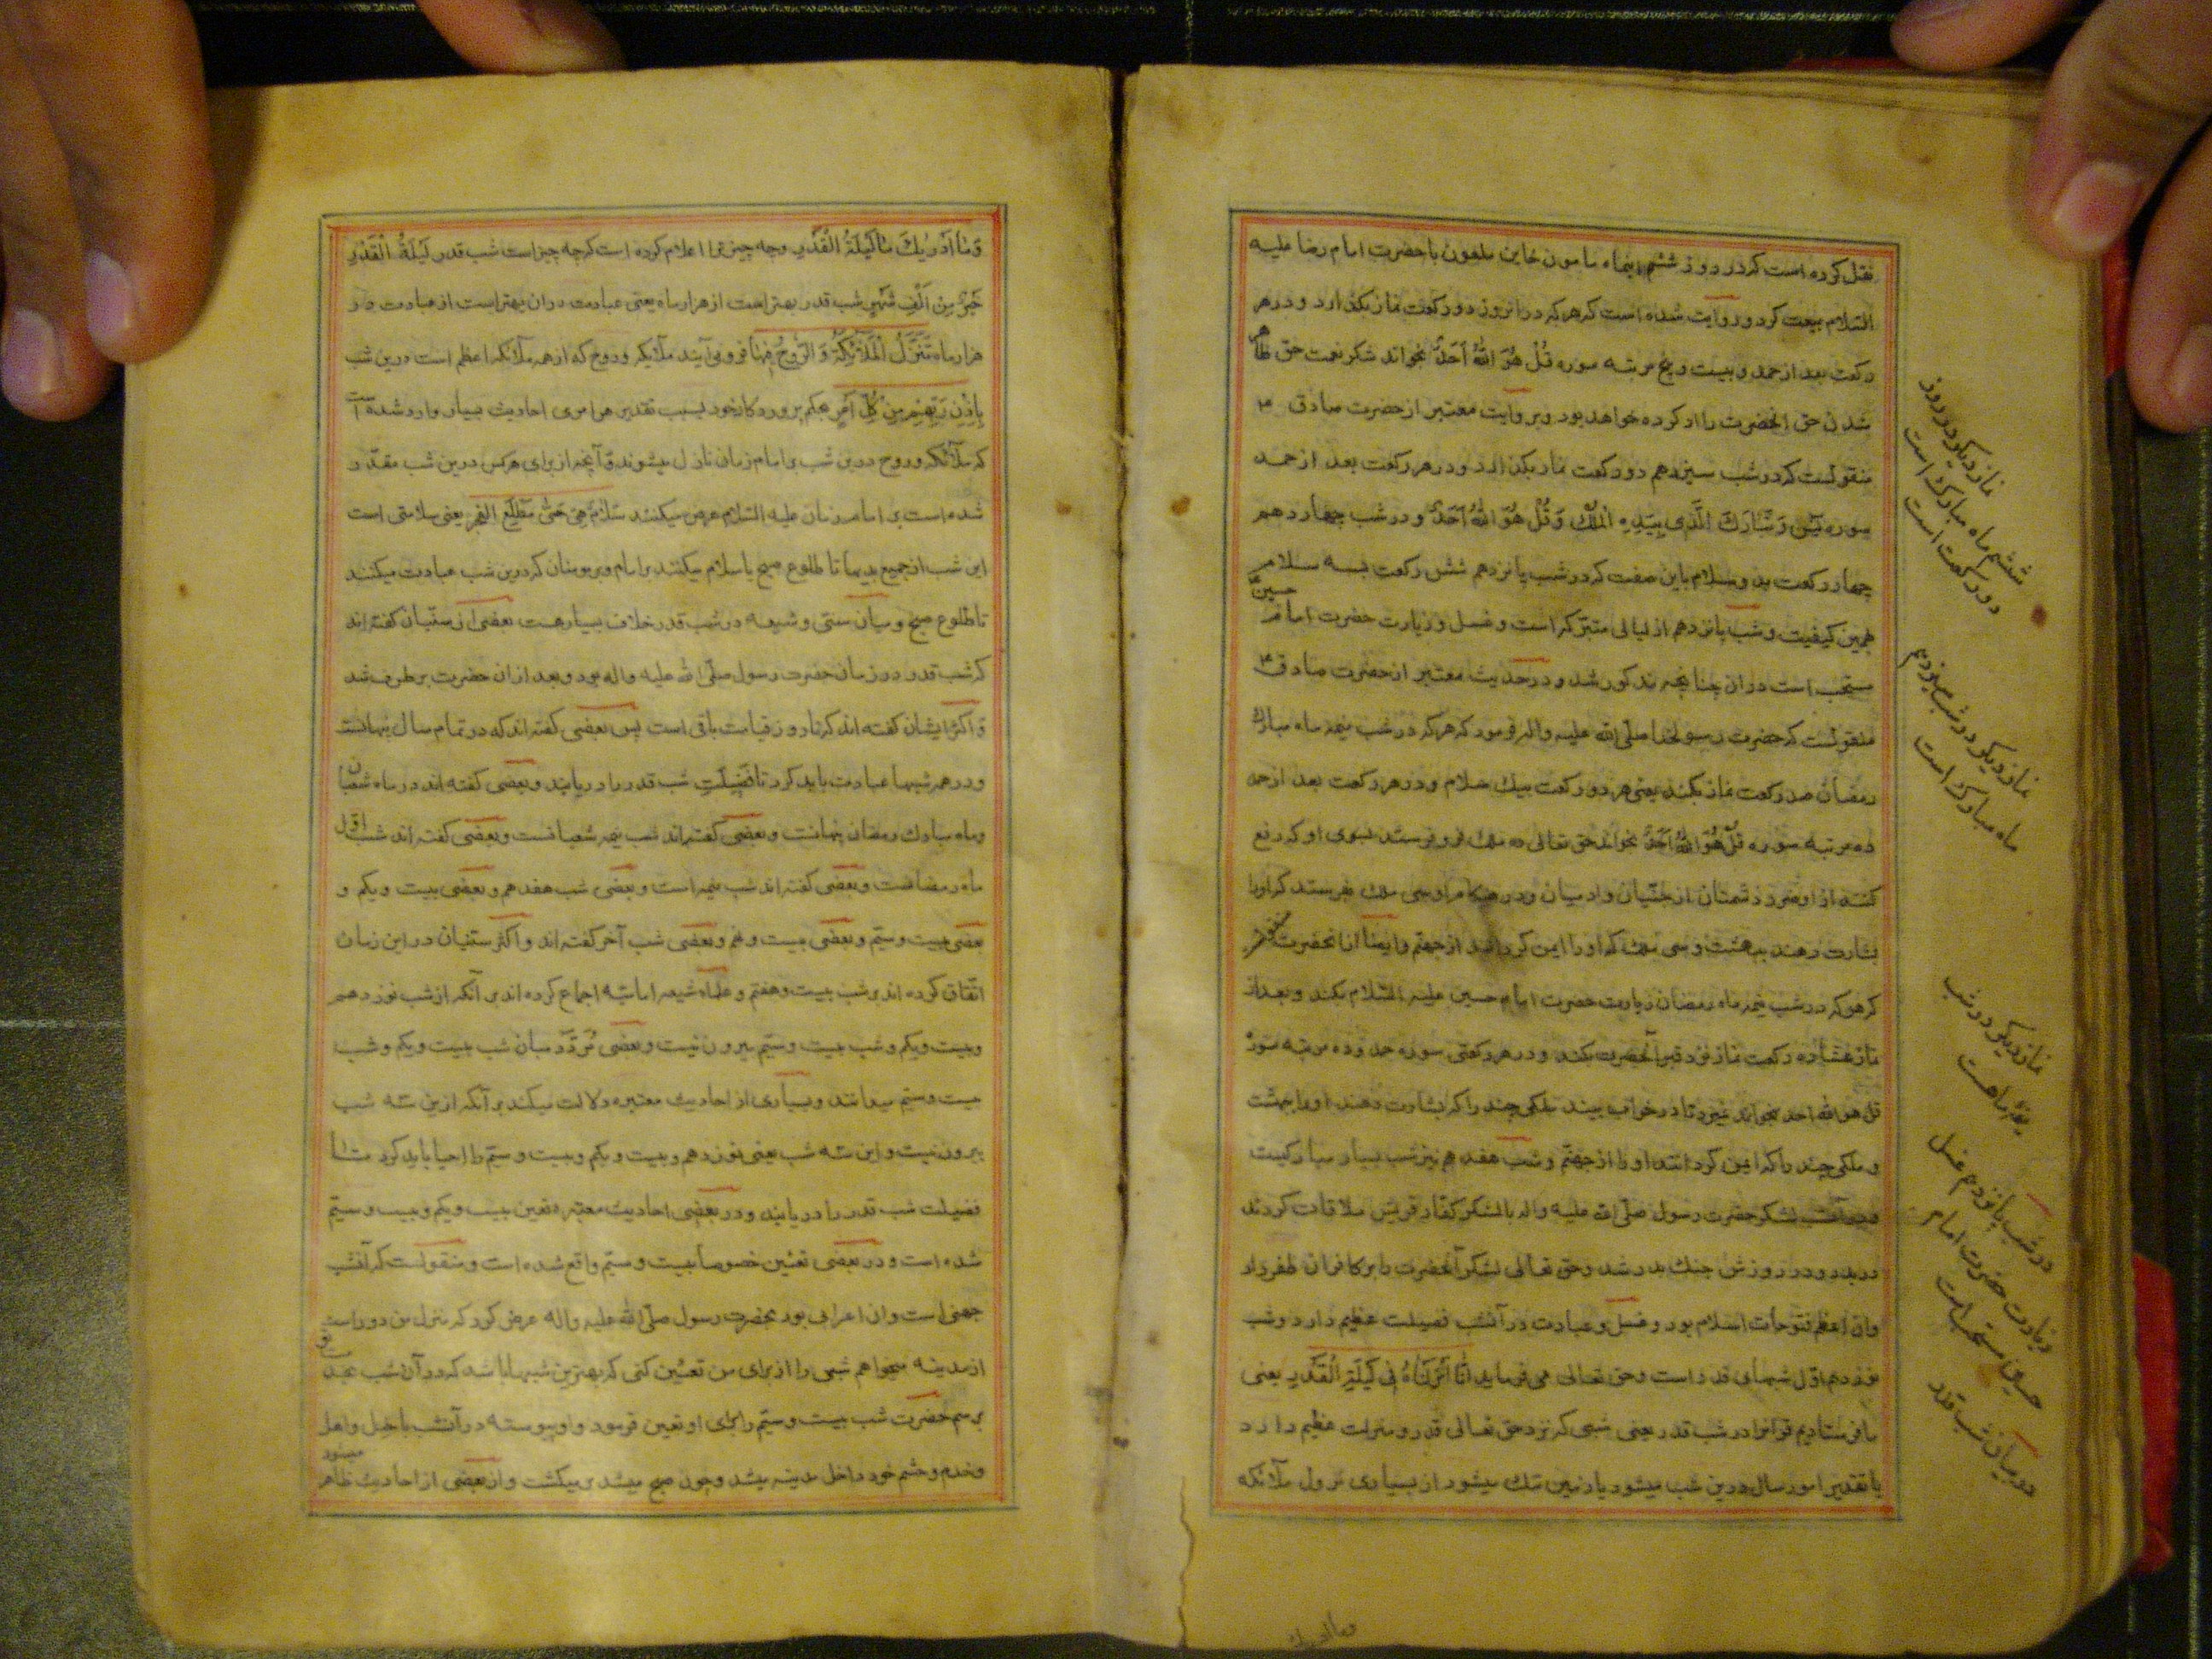 نقل کرده است که در روز ششم اینماه مامون خاین ملعون با حضرت امام رضا علیه
السلام بیعت کرد و روایت شده است که هر که در انروز دو رکعت نماز بکذارد و در هر
رکعت بعد از حمد و بیست و پنج مرتبه سوره قُلْ هُوَ اللّٰهُ اَحَدٌ بخواند شکر نعمت حق ظاهر
شدن حق انحضرت را ادا کرده خواهد بود و بروایت معتبر از حضرت صادق ع
منقولست که در شب سیزدهم دو رکعت نماز بکذارد و در هر رکعت بعد از حمد
سوره یٰسٓ وَ تَبَارَكَ الَّذِی بِیَدِهِ الْمُلْكُ وَ قُلْ هُوَ اللّٰهُ اَحَدٌ و در شب چهاردهم
چهار رکعت بدو سلام باین صفت که در شب پانزدهم شش رکعت بسه سلام
همین کیفیت و شب پانزدهم از لیالی متبرکه است و غسل و زیارت حضرت امام حسین ع
مستحب است در ان چنانچه مذکور شد و در حدیث معتبر از حضرت صادق ع
منقولست که حضرت رسولخدا صلّی الله علیه واله فرمود که هر که در شب نیمه ماه مبارك
رمضان صد رکعت نماز بکند یعنی هر دو رکعت بیك سلام و در هر رکعت بعد از حمد
ده مرتبه سوره قُلْ هُوَ اللّٰهُ اَحَدٌ بخواند حق تعالی ده ملك فرو فرستد بسوی او که رفع
کنند از او ضرر دشمنان از جنّیان و ادمیان و در هنکام مرك او سی ملك بفرستد که او را
بشارت دهند ببهشت و سی ملك که او را ایمن کردانند از جهنّم و ایضا از انحضرت منقولست
که هر که در شب نیمه ماه رمضان زیارت حضرت امام حسین علیه السّلام بکند و بعد از
نماز عشا ده رکعت نماز نزد قبر آنحضرت بکند و در هر رکعتی سوره حمد و ده مرتبه سوره
قل هو الله احد بخواند نمیرد تا در خواب ببیند ملکی چند را که بشارت دهند او را ببهشت
و ملکی چند را که ایمن کردانند او را از جهنّم و شب هفدهم نیز شب بسیار مبارکیست
و در آنشب لشکر حضرت رسول صلّی الله علیه واله با لشکر کفّار قریش ملاقات کردند
در بدر و در روزش جنك بدر شد و حق تعالی لشکر آنحضرت را بر کافران ظفر داد
و ان اعظم فتوحات اسلام بود و غسل و عبادت در آنشب فضیلت عظیم دارد و شب
نوزدهم اوّل شبهای قدر است و حق تعالی می فرماید اِنَّا اَنْزَلْنَاهُ فِی لَیْلَةِ الْقَدْرِ یعنی
ما فرستادیم قرانرا در شب قدر یعنی شبی که نزد حق تعالی قدر و منزلت عظیم دارد
یا تقدیر امور سال درین شب میشود یا زمین تنك میشود از بسیاری نزول ملآئکه
نماز دیکر در روز
ششم ماه مبارك است
دو رکعت است
نماز دیکر در شب سیزدهم
ماه مبارك است
نماز دیکر در شب
در شب پانزدهم غسل
و زیارت حضرت امام
حسین مستحب است
در بیان شب قدر
وَمَا اَدْرٰیكَ مَا لَیْلَةُ الْقَدْرِ و چه چیز ترا اعلام کرده است که چه چیز است شب قدر لَیْلَةُ الْقَدْرِ
خَیْرٌ مِن اَلْفِ شَهْرٍ شب قدر بهتر است از هزار ماه یعنی عبادت در ان بهتر است از عبادت در
هزار ماه تَنَزَّلُ الْمَلَآئِكَةُ وَ الرُّوحُ فِیهَا فرو می آیند ملآئکه و روح که از همه ملآئکه اعظم است درین شب
بِاِذْنِ رَبِّهِمْ مِنْ كُلِّ اَمْرٍ بحکم پروردکار خود بسبب تقدیر هر امری احادیث بسیار وارد شده است
که ملآئکه و روح درین شب بر امام زمان نازل میشوند و آنچه از برای هر کس درین شب مقدّر
شده است بر امام زمان علیه السّلام عرض میکنند سَلَامٌ هِیَ حَتّٰی مَطْلَعِ الْفَجْرِ یعنی سلامتی است
این شب از جمیع بدیها تا طلوع صبح یا سلام میکنند بر امام و بر مومنان که درین شب عبادت میکنند
تا طلوع صبح و میان سنّی و شیعه در شب قدر خلاف بسیار هست بعضی از سنّیان کفته اند
که شب قدر در زمان حضرت رسول صلّی الله علیه واله بود و بعد از ان حضرت بر طرف شد
و اکثر ایشان کفته اند که تا روز قیامت باقی است پس بعضی کفته اند که در تمام سال پنهانست
و در همه شبها عبادت باید کرد تا فضیلت شب قدر را دریابند و بعضی کفته اند در ماه شعبان
و ماه مبارك رمضان پنهانست و بعضی کفته اند شب نیمه شعبانست و بعضی کفته اند شب اوّل
ماه رمضانست و بعضی کفته اند شب نیمه است و بعضی شب هفدهم و بعضی بیست و یکم و
بعضی بیست و سیّم و بعضی بیست و نهم و بعضی شب آخر کفته اند و اکثر سنّیان در این زمان
اتّفاق کرده اند بر شب بیست و هفتم و علماء شیعه امامیّه اجماع کرده اند بر آنکه از شب نوزدهم
و بیست و یکم و شب بیست و سیّم بیرون نیست و بعضی مُردَّد میان شب بیست و یکم و شب
بیست و سیّم میدانند و بسیاری از احادیث معتبره دلالت میکند بر آنکه ازین سه شب
بیرون نیست و این سه شب یعنی نوزدهم و بیست و یکم و بیست و سیّم را احیا باید کرد تا
فضیلت شب قدر را دریابند و در بعضی احادیث معتبره تعین بیست و یکم و بیست و سیّم
شده است و در بعضی تعیّین خصوصا بیست و سیّم واقع شده است و منقولست که آنشب
جهنی است و ان اعرابی بود بحضرت رسول صلّی الله علیه واله عرض کرد که منزل من دور است
از مدینه میخواهم شبی را از برای من تعیّین کنی که بهترین شبها باشد که در آن شب بمدینه
برسم حضرت شب بیست و سیّم را برای او تعین فرمود و او پیوسته در آنشب با خیل و اهل
و خدم و حشم خود داخل مدینه میشد و چون صبح میشد بر میکشت و از بعضی از احادیث ظاهر میشود